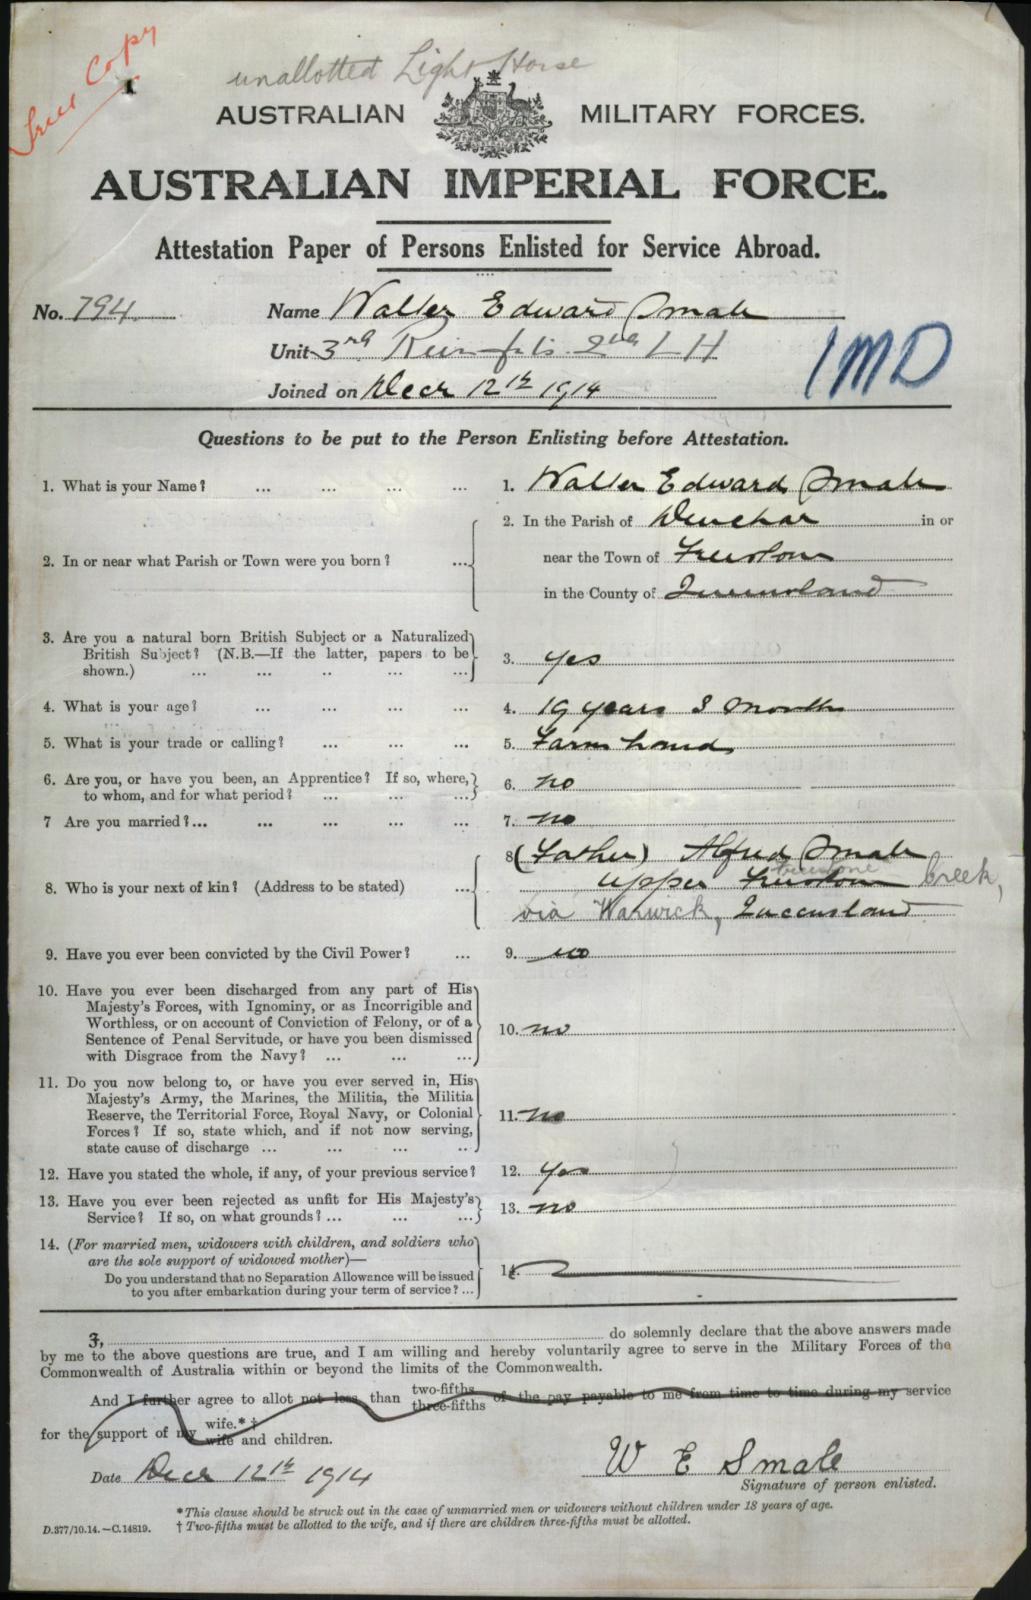 True Copy
unallotted Light Horse
AUSTRALIAN MILITARY FORCES.
AUSTRALIAN IMPERIAL FORCE.
Attestation Paper of Persons Enlisted for Service Abroad.
No. 794 Name Walter Edward Smale
Unit 3rd Reinfts 2nd L H
1MD
Joined on Decr 12th 1914
Questions to be put to the Person Enlisting before Attestation.
1. What is your Name? ... ... ... ... 1. Walter Edward Smale
2. In or near what Parish or Town were you born? ... 2. In the Parish of in or
near the Town of Freestone
in the County of Queensland
3. Are you a natural born British Subject or a Naturalized
British Subject? (N.B.—If the latter, papers to be
shown.) ... ... ... ... ... 3. yes
4. What is your age? ... ... ... ... 4. 19 years 3 months
5. What is your trade or calling? ... ... ... 5. Farm hand
6. Are you, or have you been, an Apprentice? If so, where,
to whom, and for what period? ... ... ... 6. no
7 Are you married?... ... ... ... ... 7. no
8. Who is your next of kin? (Address to be stated) ... 8 (Father) Alfred Smale
upper Freestone freestone Creek,
via Warwick, Queensland
9. Have you ever been convicted by the Civil Power? ... 9. no
10. Have you ever been discharged from any part of His
Majesty's Forces, with Ignominy, or as Incorrigible and
Worthless, or on account of Conviction of Felony, or of a
Sentence of Penal Servitude, or have you been dismissed
with Disgrace from the Navy? ... ... ... 10. no
11. Do you now belong to, or have you ever served in, His
Majesty's Army, the Marines, the Militia, the Militia
Reserve, the Territorial Force, Royal Navy, or Colonial
Forces? If so, state which, and if not now serving,
state cause of discharge ... ... ... .. 11. no
12. Have you stated the whole, if any, of your previous service? 12. yes
13. Have you ever been rejected as unfit for His Majesty's
Service? If so, on what grounds? ... ... ... 13. no
14. (For married men, widowers with children, and soldiers who
are the sole support of widowed mother)—
Do you understand that no Separation Allowance will be issued
to you after embarkation during your term of service? ... 14.
I, do solemnly declare that the above answers made
by me to the above questions are true, and I am willing and hereby voluntarily agree to serve in the Military Forces of the
Commonwealth of Australia within or beyond the limits of the Commonwealth.
And I further agree to allot not less than two-fifths three-fifths of the pay payable to me from time to time during my service
for the support of my wife.*† wife and children.
W E Smale
Date Decr 12th 1914 Signature of person enlisted.
* This clause should be struck out in the case of unmarried men or widowers without children under 18 years of age.
D.377/10.14.—C.14819. † Two-fifths must be allotted to the wife, and if there are children three-fifths must be allotted.